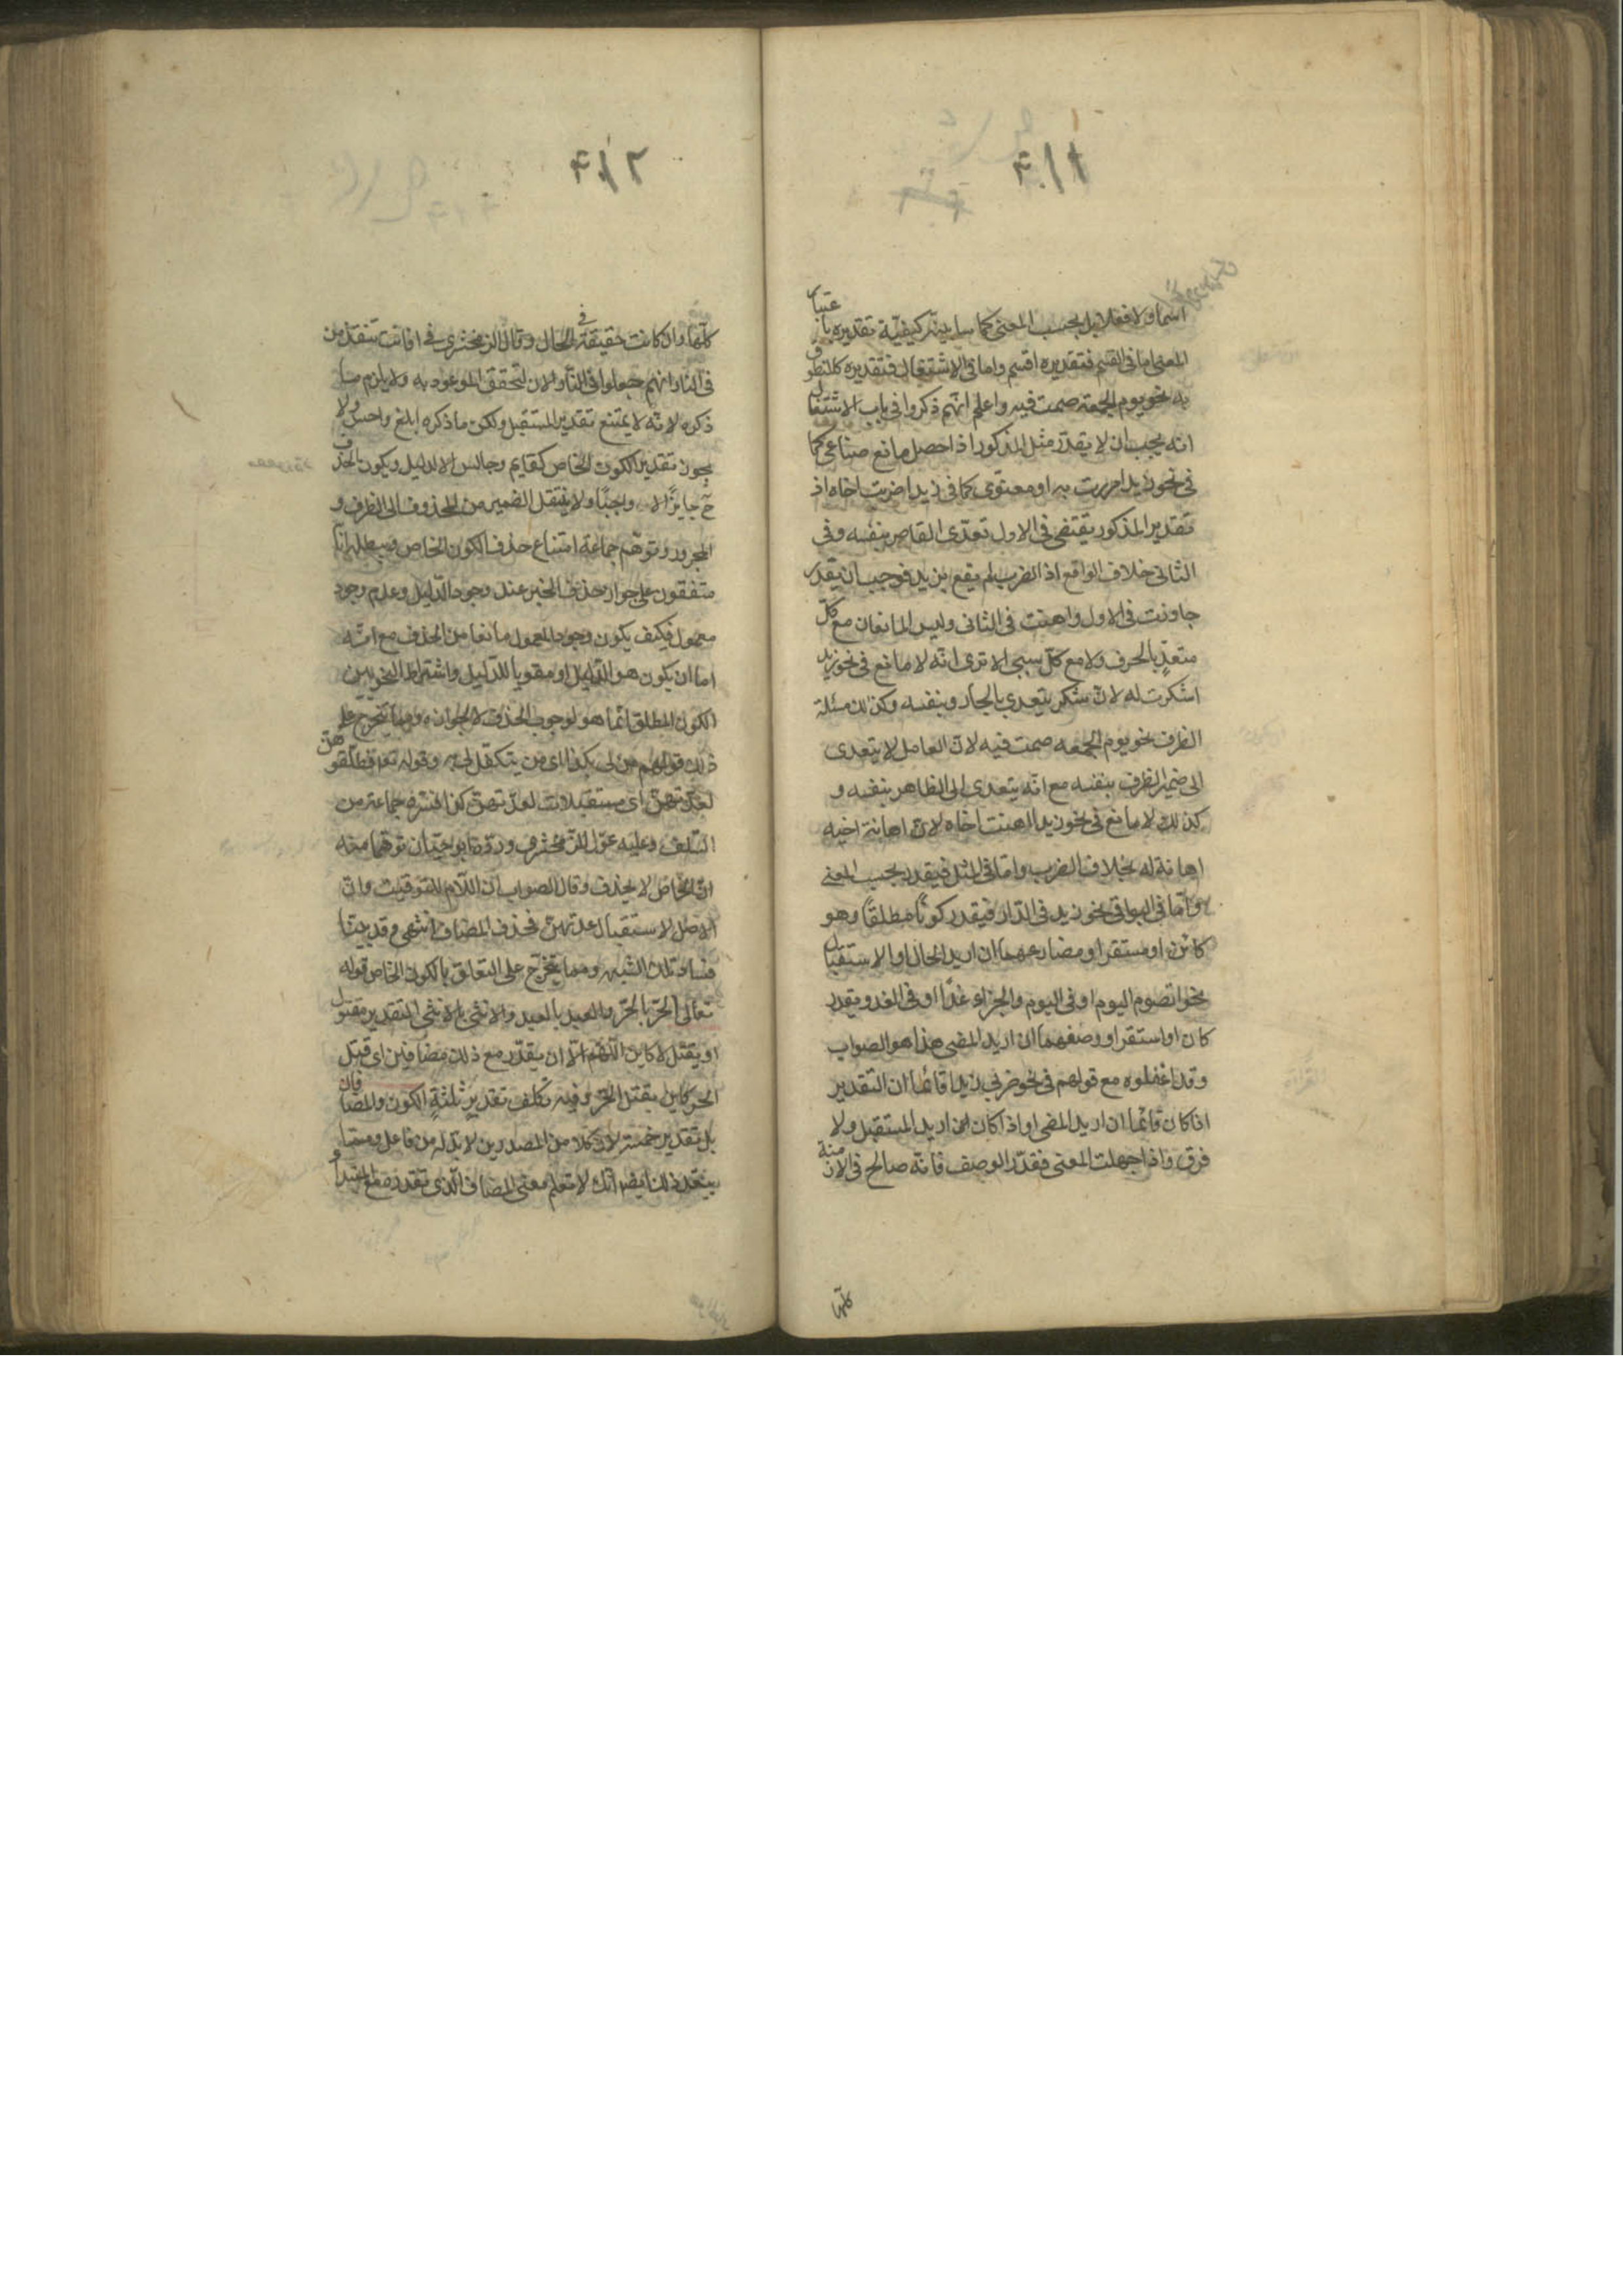 اسما ولا فعلا بل بحسب المعنى كما سابينه كيفيّة تقديره باعتبار
المعنى اما في القسم فتقديره اقسم واما في الاشتغال فتقديره كالمنطوق
به نحو يوم الجمعة صمت فيه واعلم انّهم ذكروا في باب الاشتغال
انه يجب ان لا يقدّر مثل المذكور اذا حصل مانع صناعي كما
في نحو زيدا مررت به او معنوي كما في زيدا ضربت اخاه اذ
تقدير المذكور يقتضى في الاول تعدّى القاصر بنفسه وفى
الثانى خلاف الواقع اذ الضرب لم يقع بزيد فوجب ان يقدر
جاوزت في الاول واهنت في الثانى وليس المانعان مع كلّ
متعدٍ بالحرف ولا مع كلّ سببى الا ترى انّه لا مانع فى نحو زيد
اشكرت له لانّ شكر يتعدى بالجار وبنفسه وكذلك مسئلة
الظرف نحو يوم الجمعه صمت فيه لانّ العامل لا يتعدى
الى ضمير الظرف بنفسه مع انّه يتعدى الى الظاهر بنفسه و
كذلك لا مانع فى نحو زيدا اهنت اخاه لانّ اهانة اخيه
اهانة له بخلاف الضرب وامّا فى المثل فيقدر بحسب المعنى
وامّا فى البواقى نحو زيد فى الدّار فيقدر كونًا مطلقًا وهو
كائن او مستقر او مضارعهما ان اريد الحال او الاستقبال
نحو الصوم اليوم او فى اليوم والجزاء غدًا او فى الغد ويقدر
كان او استقر او وصفهما ان اريد المضى هذا هو الصواب
وقد اغفلوه مع قولهم فى نحو ضربى زيدا قائما ان التقدير
اذا كان قائما ان اريد المضى او اذا كان ان اريد المستقبل ولا
فرق واذا جهلت المعنى فقدّر الوصف فانّه صالح فى الازمنة
كلّها
كلّها وان كانت حقيقة فى الحال وقال الزمخشرى فى افانت تنقذ من
فى النار انهم جعلوا فى النار الان لتحقق الموعود به ولا يلزم ما
ذكره لانّه لا يمتنع تقدير المستقبل ولكن ما ذكره ابلغ واحسن ولا
يجوز تقدير الكون الخاص كقايم وجالس الا لدليل ويكون الحذف
ح جايزًا لا واجبًا ولا ينتقل الضمير من المحذوف الى الظرف و
المجرور وتوهّم جماعة امتناع حذف الكون الخاص ويبطله انّا
متفقون على جواز حذف الخبر عند وجود الدّليل وعدم وجود
معمول فكيف يكون وجود المعمول مانعا من الحذف مع انّه
اما ان يكون هو الدّليل او مقويا للدّليل واشتراط النحويين
الكون المطلق انّما هو لوجوب الحذف لا لجوازه ومما يتخرج على
ذلك قولهم من لى بكذا اى من يتكفّل لى به وقوله تعا فطلّقوهنّ
لعدّتهنّ اى مستقبلات لعدّتهنّ كذا فسّره جماعة من
السّلف وعليه عوّل الزّمخشرى وردّه ابو حيّان توهّما منه
انّ الخاصّ لا يحذف وقال الصواب انّ اللّام للتوقيت وانّ
الاصل لاستقبال عدّتهنّ فحذف المضاف انتهى وقد بيّنا
فساد تلك الشبهه ومما يتخرّج على التعلق بالكون الخاص قوله
تعالى الحرّ بالحرّ والعبد بالعبد والانثى بالانثى التقدير مقتول
او يقتل لا كاين اللّهم الّا ان يقدّر مع ذلك مضافين اى قتل
الحر كاين بقتل الحرّ وفيه تكلف تقدير ثلثة الكون والمضافان
بل تقدير خمسة لانّ كلا من المصدرين لا بدّ له من فاعل ومما
يبعّد ذلك ايضا انّك لا تعلم معنى المضاف الّذى تقدره مع المبتدا و